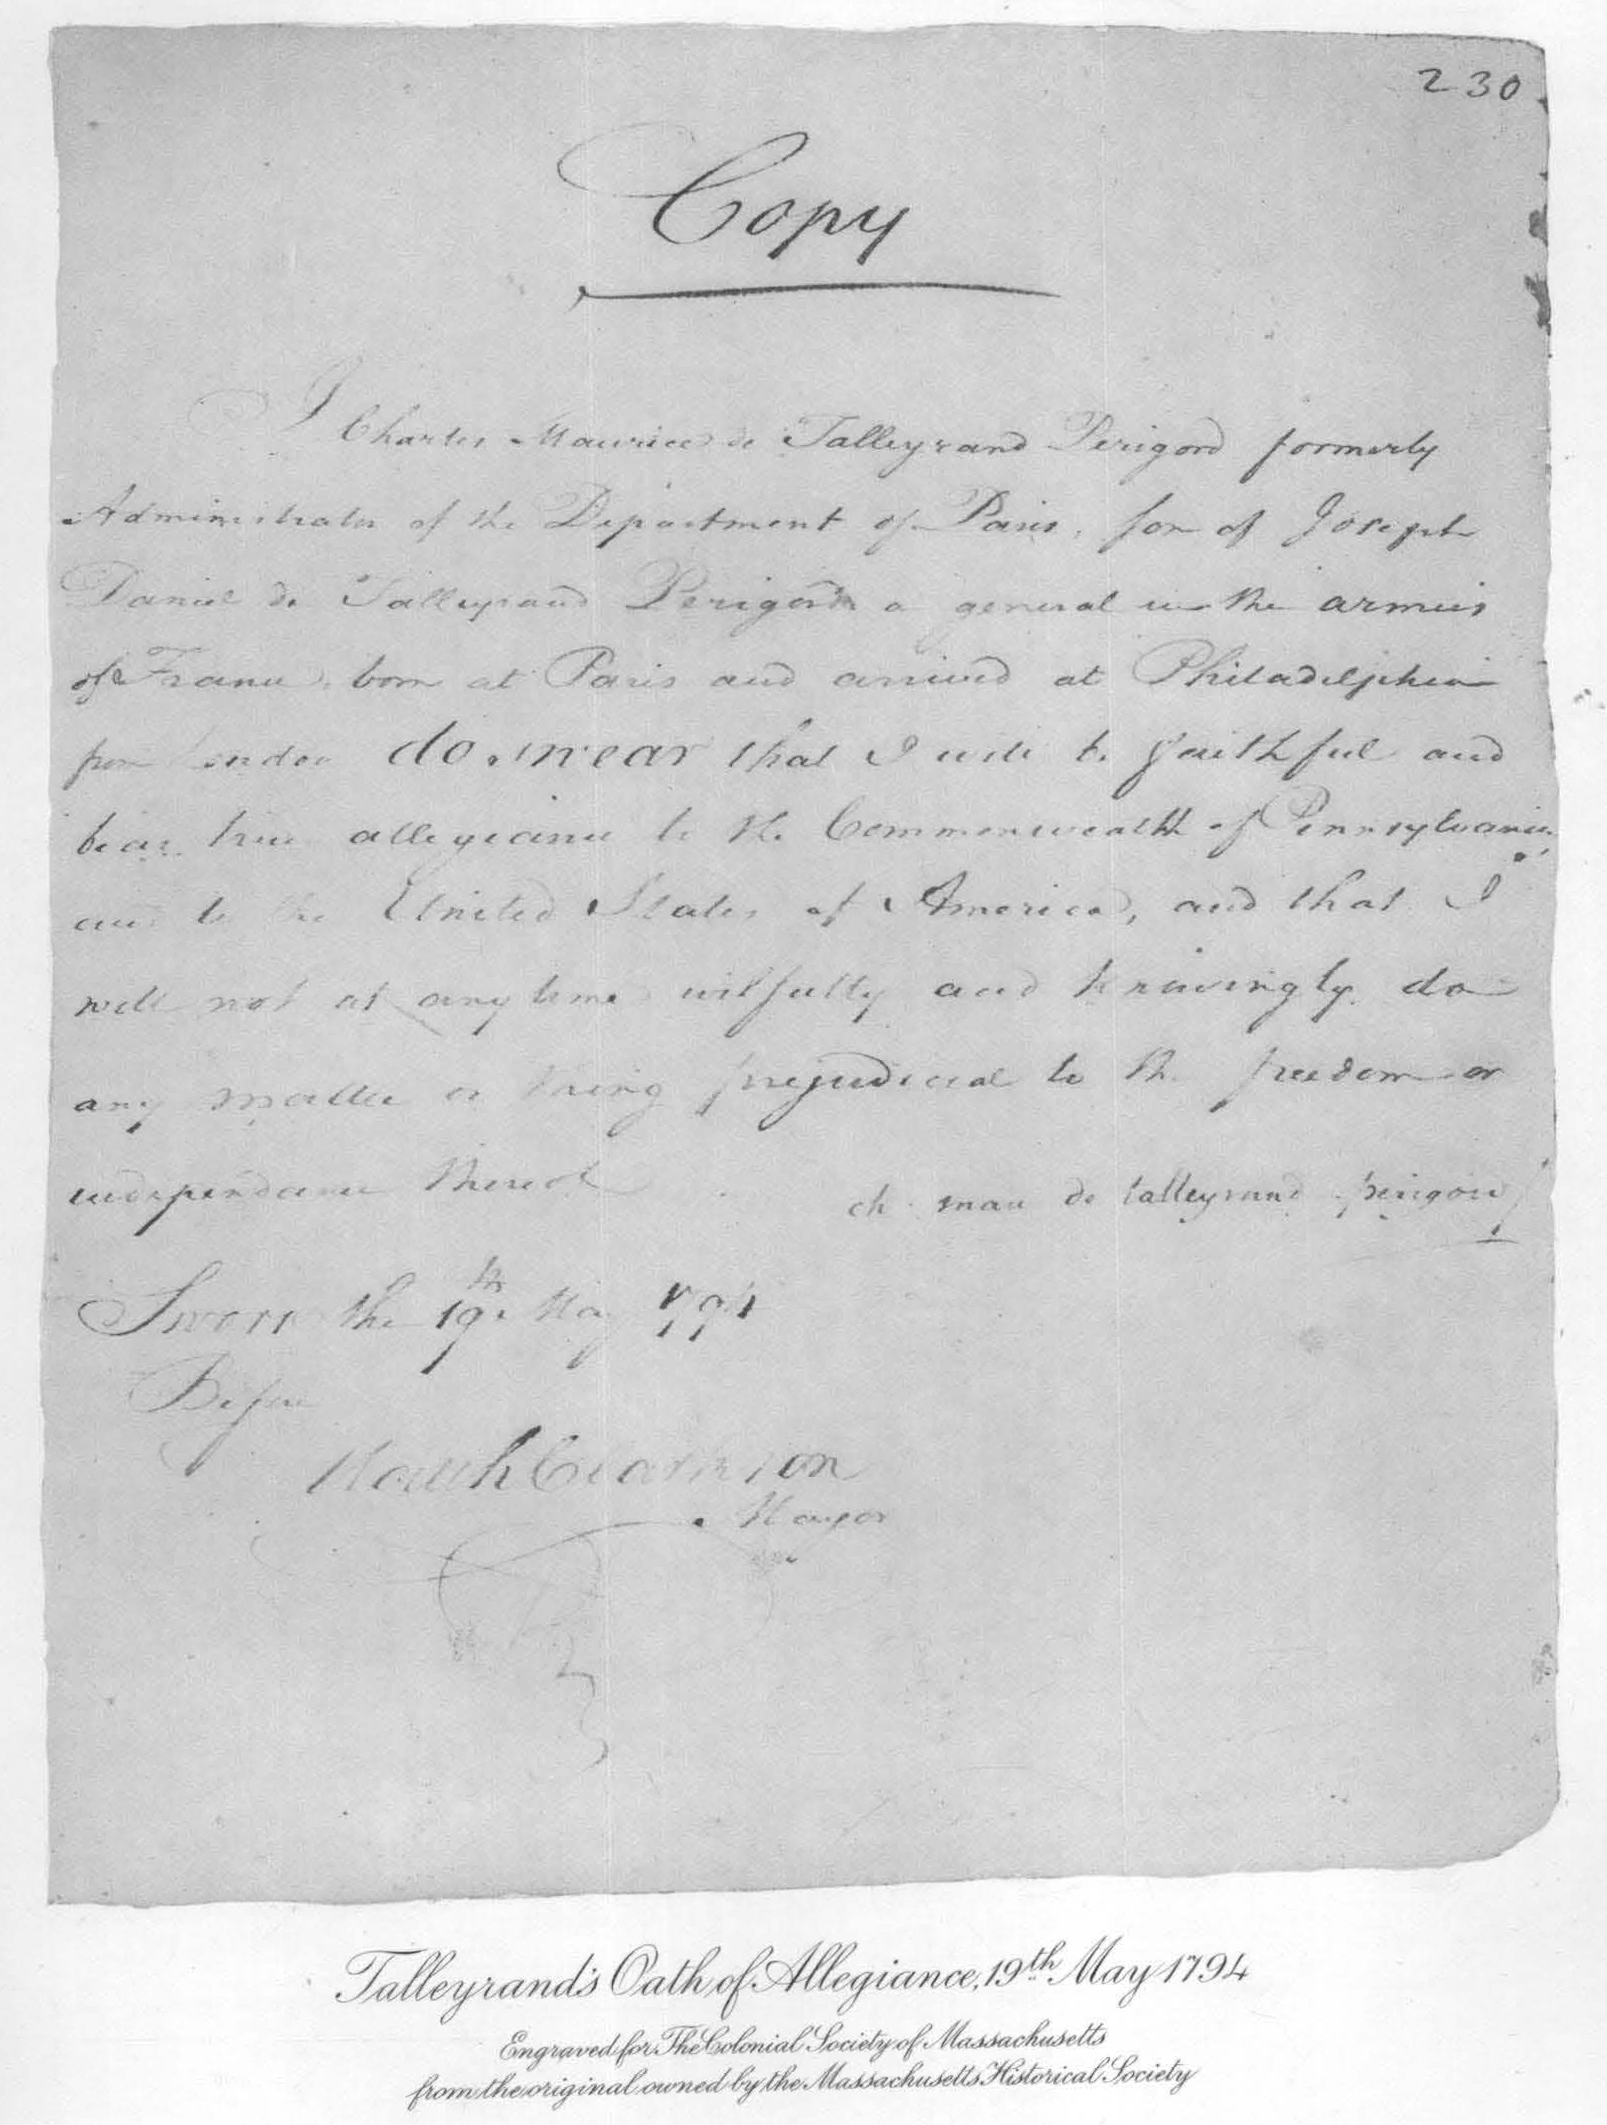 230
Copy
I Charles Maurice de Talleyrand Perigord formerly
Administrator of the Department of Paris, son of Joseph
Daniel de Talleyrand Perigord a general in the armies
of France, born at Paris and arrived at Philadelphia
from London do swear that I will be faithful and
bear true allegiance to the Commonwealth of Pennsylvania
and to the United States of America, and that I
will not at any time wilfully and knowingly do
any matter or thing prejudicial to the freedom or
independance thereof
ch. mau de talleyrand perigord
Sworn the 19th May 1794
Before
Matth Clarkson
Mayor
Talleyrand's Oath of Allegiance, 19th May 1794
Engraved for The Colonial Society of Massachusetts
from the original owned by the Massachusetts Historical Society